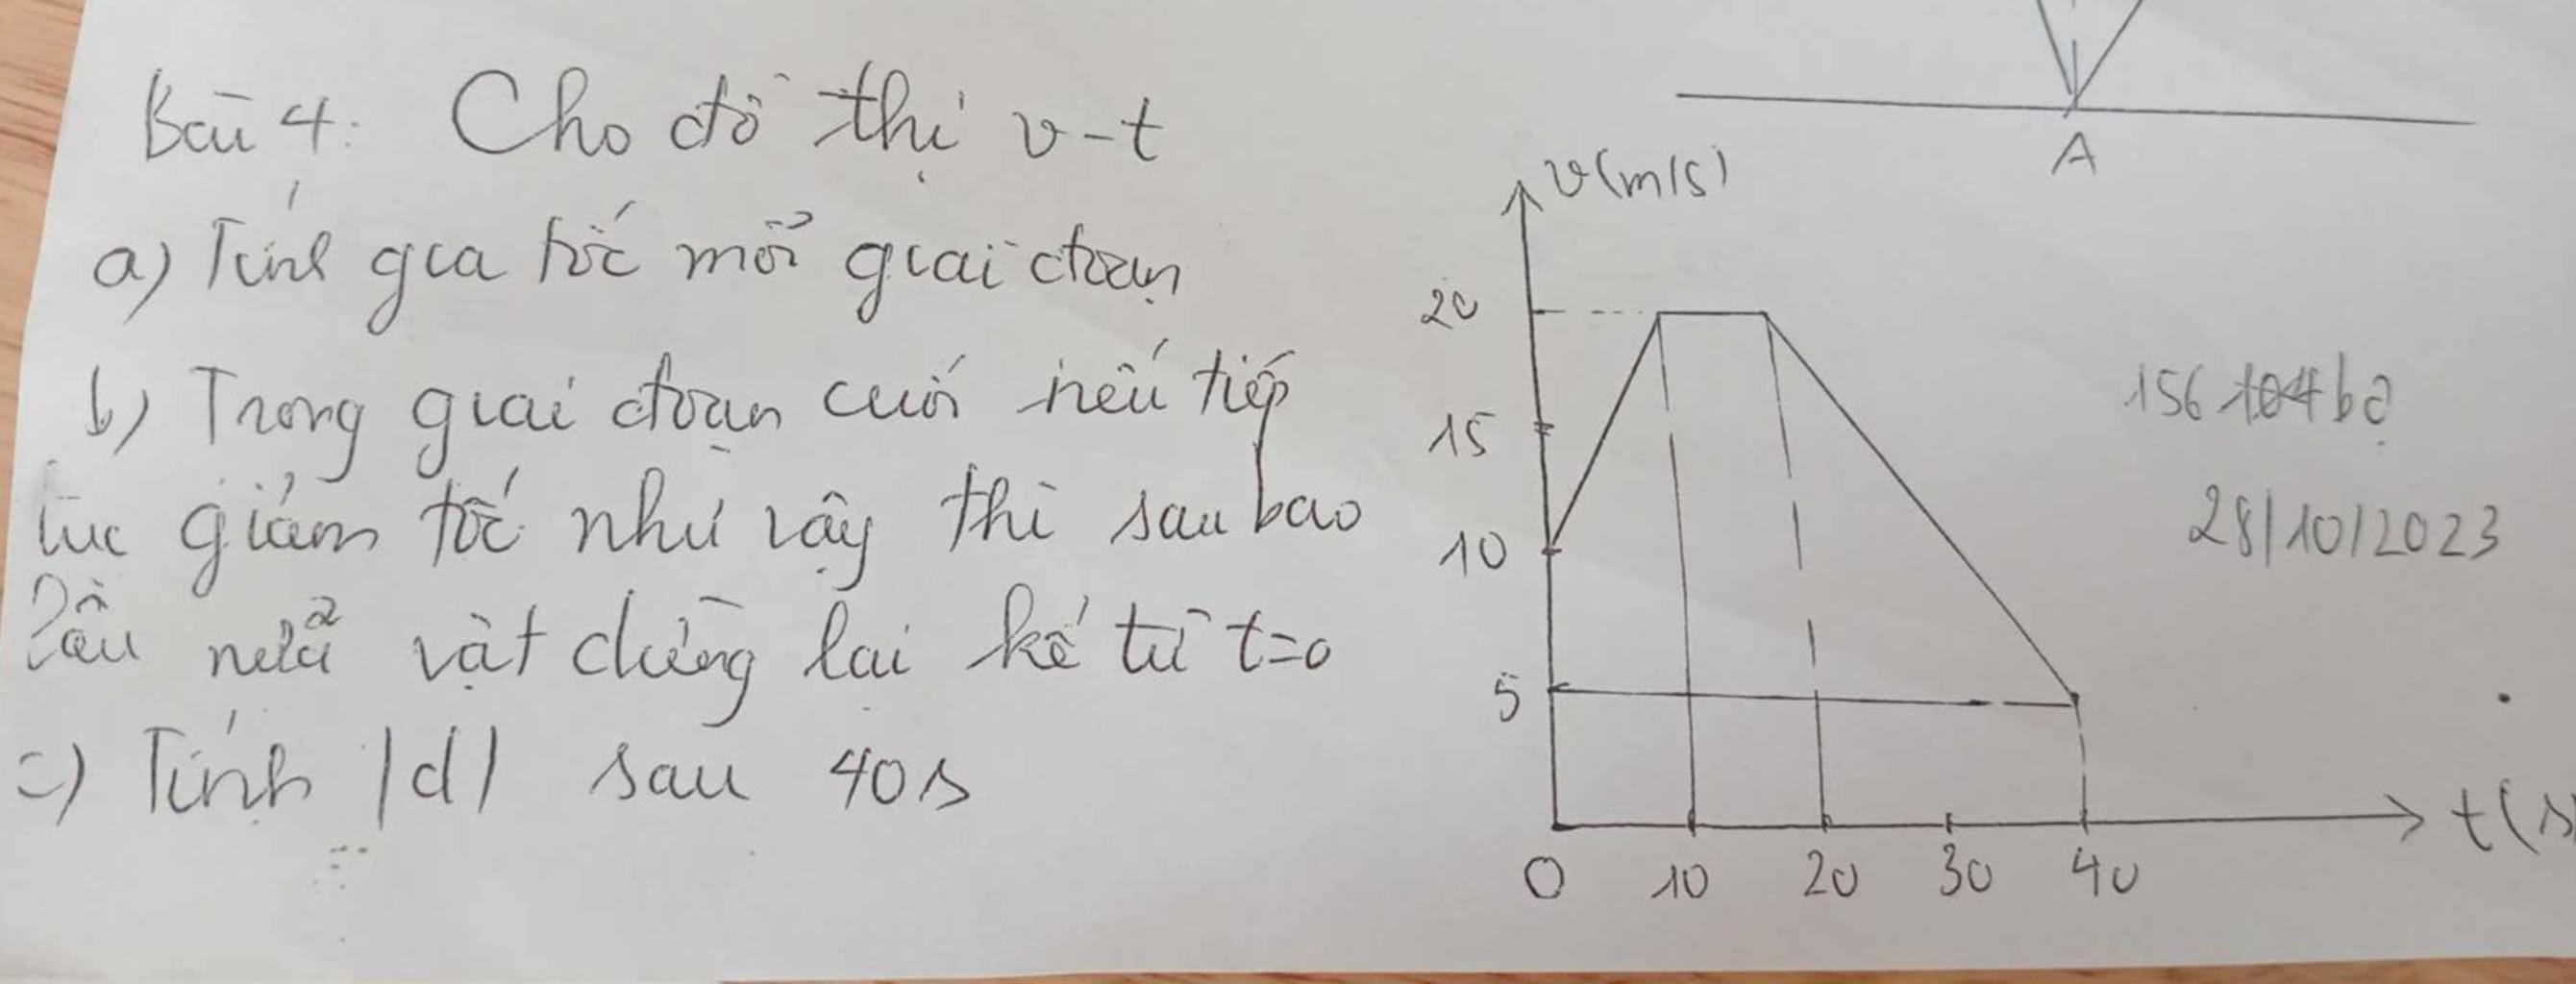 Bài 4: Cho đồ thị v-t
a) Tính gia tốc mỗi giai đoạn
b) Trong giai đoạn cuối nếu tiếp
tục giảm tốc như vậy thì sau bao
lâu nữa vật dừng lại kể từ t=0
c) Tính |d| sau 40s
A
v(m/s)
20
15
10
5
0 10 20 30 40
t(s)
156
28/10/2023